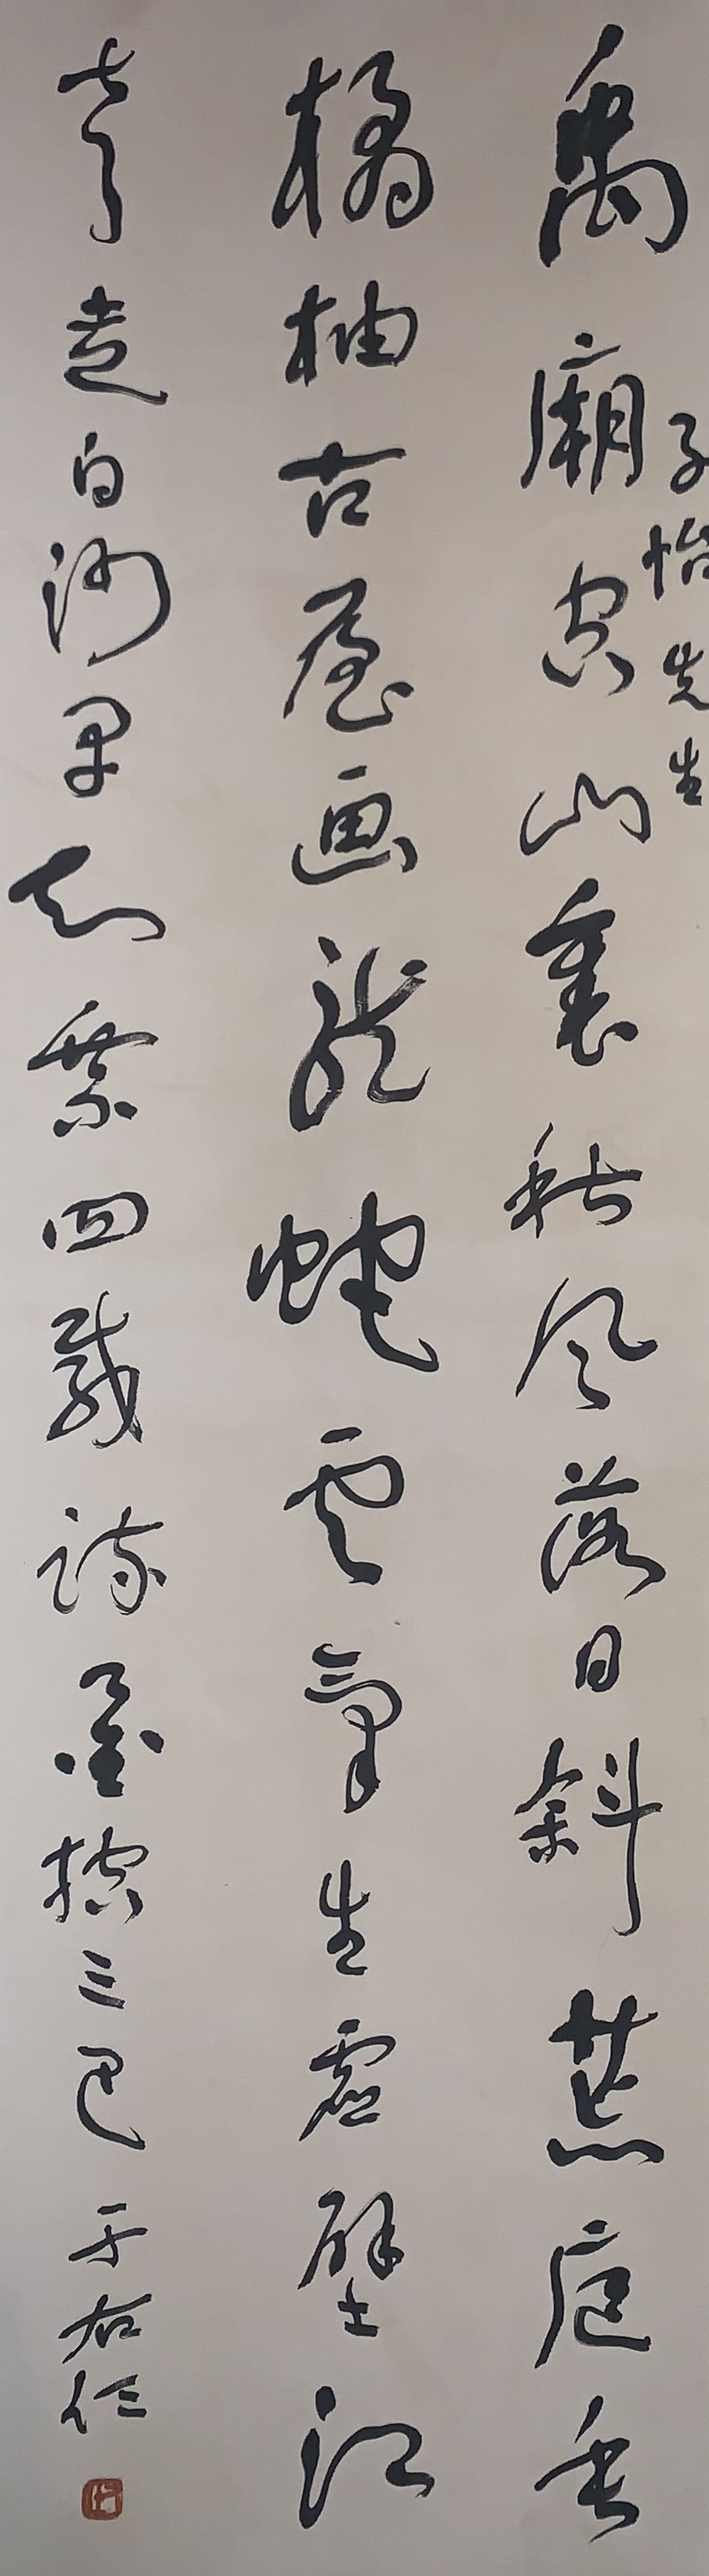 禹廟空山裏秋風落日斜荒庭垂
子怡先生
橘柚古屋画龍蛇雲氣生虛壁江
聲走白沙早知乘四載疏鑿控三巴
于右任